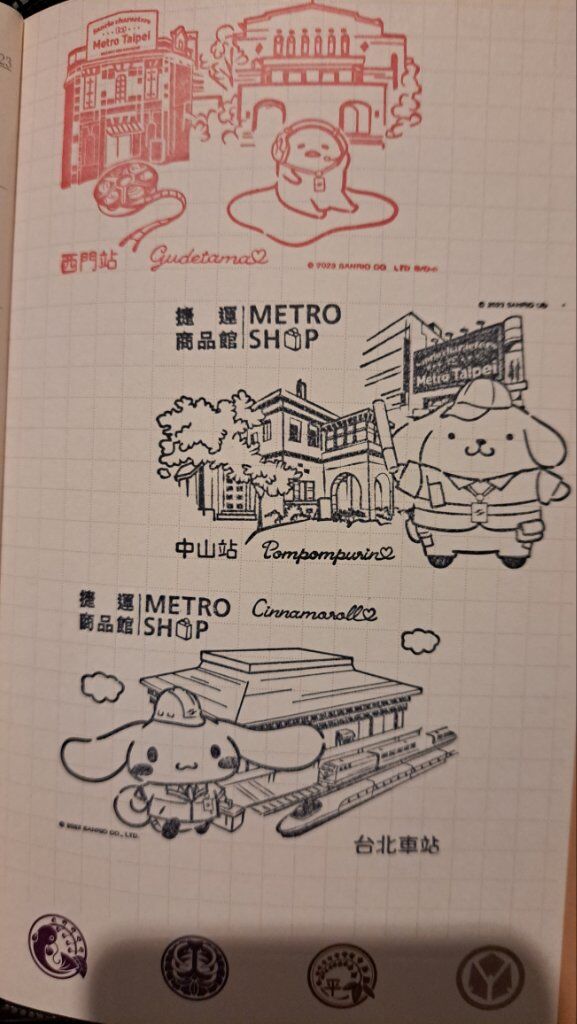 23
Sanrio characters
Metro Taipei
西門站 Gudetama
© 2023 SANRIO CO., LTD.
© 2023 SANRIO CO
捷運 METRO
商品館 SHOP
Sanrio characters
Metro Taipei
中山站 Pompompurin
捷運 METRO
商品館 SHOP
Cinnamoroll
© 2023 SANRIO CO., LTD.
台北車站
平